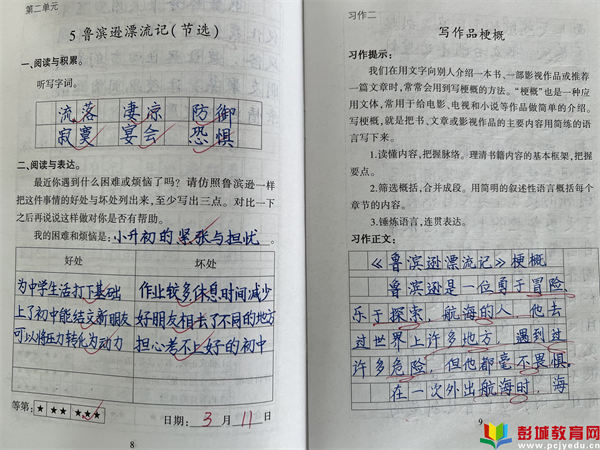 第二单元
5 鲁滨逊漂流记(节选)
一、阅读与积累。
听写字词。
流落 凄凉 防御
寂寞 宴会 恐惧
二、阅读与表达。
最近你遇到什么困难或烦恼了吗?请仿照鲁滨逊一样
把这件事情的好处与坏处列出来,至少写出三点。对比一下
之后再说说这样做对你是否有帮助。
我的困难和烦恼是:小升初的紧张与担忧。
好处 坏处
为中学生活打下基础 作业较多休息时间减少
上了初中能结交新朋友 好朋友相去了不同的地方
可以将压力转化为动力 担心考不上好的初中
等第:★ ★★ ★★★
日期:3月11日
8
习作二
写作品梗概
习作提示:
我们在用文字向别人介绍一本书、一部影视作品或推荐
一篇文章时,常常会用到写梗概的方法。“梗概”也是一种应
用文体,常用于给电影、电视和小说等作品做简单的介绍。
写梗概,就是把书、文章或影视作品的主要内容用简练的语
言写下来。
1.读懂内容,把握脉络。理清书籍内容的基本框架,把握
要点。
2.筛选概括,合并成段。用简明的叙述性语言概括每个
章节的内容。
3.锤炼语言,连贯表达。
习作正文:
《鲁滨逊漂流记》梗概
鲁滨逊是一位勇于冒险、
乐于探索、航海的人,他去
过世界上许多地方,遇到过
许多危险,但他都毫不畏惧。
在一次外出航海时,海
9
彭城教育网
www.pcjyedu.com